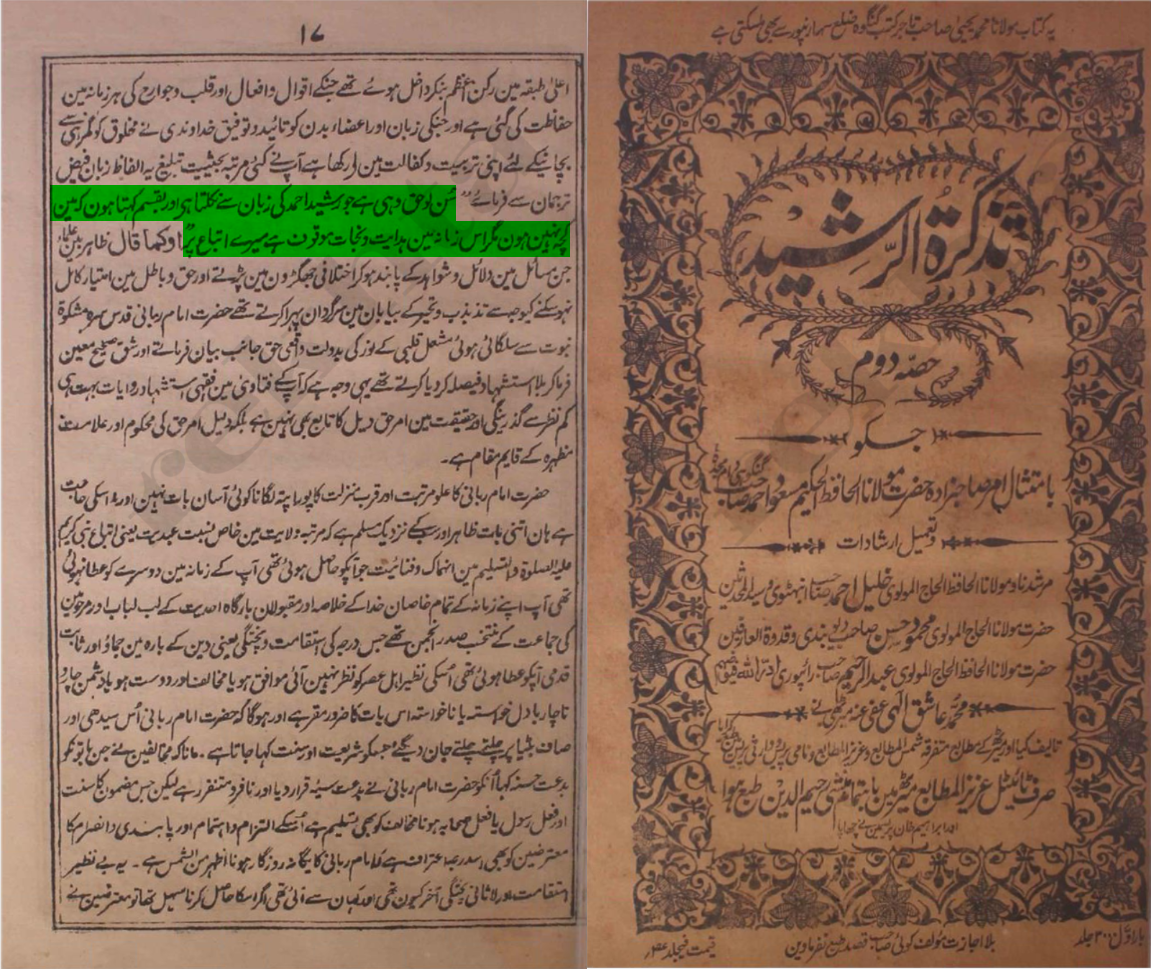 یہ کتاب مولانا محمد یحییٰ صاحب تاجر کتب گنگوہ ضلع سہارنپور سے بھی ملسکتی ہے
تذکرۃ الرشید
حصہ دوم
جسکو
بامتثال امر صاحبزادہ حضرت مولانا الحافظ الحکیم مسعود احمد صاحب گنگوہی
وتعمیل ارشادات
مرشدنا ومولانا الحافظ الحاج المولوی خلیل احمد صاحب انبہٹوی
حضرت مولانا الحاج المولوی محمود حسن صاحب دیوبندی وقدوۃ العارفین
حضرت مولانا الحافظ الحاج المولوی عبدالرحیم صاحب رائپوری
محمد عاشق الٰہی عفی عنہ میرٹھی نے
تالیف کیا اور میرٹھ کے مطابع متفرقہ شمس المطابع وعزیز المطابع
صرف ٹائٹل عزیز المطابع میرٹھ مین باہتمام منشی رحیم الدین طبع ہوا
اور ابراہیم خان پریسمین نے چھاپا
بار اول ۳۰۰ جلد
بلا اجازت مؤلف کوئی صاحب قصد طبع نفرماوین
قیمت فیجلد
۱۷
اعلیٰ طبقہ مین رکن اعظم بنکر داخل ہوئے تھے جنکے اقوال وافعال اور قلب وجوارح کی ہر زمانہ مین
حفاظت کی گئی ہے اور جنکی زبان اور اعضاء بدن کو تائید وتوفیق خداوندی نے مخلوق کو گمرہی سے
بچانیکے لئے اپنی تربیت وکفالت مین لے رکھا ہے آپنے کئی مرتبہ بحیثیت تبلیغ یہ الفاظ زبان فیض
ترجمان سے فرمائے سن لو حق وہی ہے جو رشید احمد کی زبان سے نکلتا ہی اور بقسم کہتا ہون کہ مین
کچھ نہین ہون مگر اس زمانہ مین ہدایت ونجات موقوف ہے میرے اتباع پر او کما قال ظاہر بین علماء
جن مسائل مین دلائل وشواہد کے پابند ہوکر اختلافی جھگڑون مین پڑتے اور حق وباطل مین امتیاز کامل
نہو سکنے کیوجہ سے تذبذب وتحیر کے بیابان مین سرگردان پھرا کرتے تھے حضرت امام ربانی قدس سرہ مشکوۃ
نبوت سے سلگائی ہوئی مشعل قلبی کے نور کی بدولت واقعی حق جانب بیان فرماتے اور شق صحیح معین
فرماکر بلا استشہاد فیصلہ کردیا کرتے تھے یہی وجہ ہے کہ آپکے فتاوی مین فقہی استشہاد وروایات بہت ہی
کم نظر سے گذرینگی اور حقیقت مین امر حق دلیل کا تابع بھی نہین ہے بلکہ دلیل امر حق کی محکوم اور علامت
مظہرہ کے قایم مقام ہے۔
حضرت امام ربانی کا علو مرتبت اور قرب منزلت کا پورا پتہ لگانا کوئی آسان بات نہین اور نہ اسکی حاجت
ہے ہان اتنی بات ظاہر اور سبکے نزدیک مسلم ہے کہ مرتبہ ولایت مین خاص نسبت عبدیت یعنی اتباع نبی کریم
علیہ الصلوۃ والتسلیم مین انہماک وفنائیت جو آپکو حاصل ہوئی تھی آپ کے زمانہ مین دوسرے کو عطا نہوئی
تھی آپ اپنے زمانہ کے تمام خاصان خدا کے خلاصہ اور مقبولان بارگاہ احدیت کے لب لباب اور مرحومین
کی جماعت کے منتخب صدر انجمن تھے جس درجہ کی استقامت وپختگی یعنی دین کے بارہ مین جماؤ اور ثابت
قدمی آپکو عطا ہوئی تھی اُسکی نظیر اہل عصر کو نظر نہین آئی موافق ہو یا مخالف اور دوست ہو یا دشمن چار و
ناچار بادل خواستہ یا ناخواستہ اس بات کا ضرور مقر ہے اور ہوگا کہ حضرت امام ربانی اُس سیدھی اور
صاف بٹیا پر چلتے چلتے جان دیگئے جسکو شریعت اور سنت کہا جاتا ہے۔ مانا کہ مخالفین نے جن باتونکو
بدعت حسنہ کہا اُنکو حضرت امام ربانی نے بدعت سیئہ قرار دیا اور نافر ومتنفر رہے لیکن جس مضمون کا سنت
اور فعل رسول یا فعل صحابہ ہونا مخالف کو بھی تسلیم ہے اُسکے التزام واہتمام اور پابندی وانصرام کا
معترضین کو بھی اسدرجہ اعتراف ہے کہ امام ربانی کا یگانہ روزگار ہونا اظہر من الشمس ہے۔ یہ بے نظیر
استقامت اور لاثانی پختگی آخر کیون تھی اور کہان سے آئی تھی اگر اسکا حاصل کرنا سہل تھا تو معترضین نے